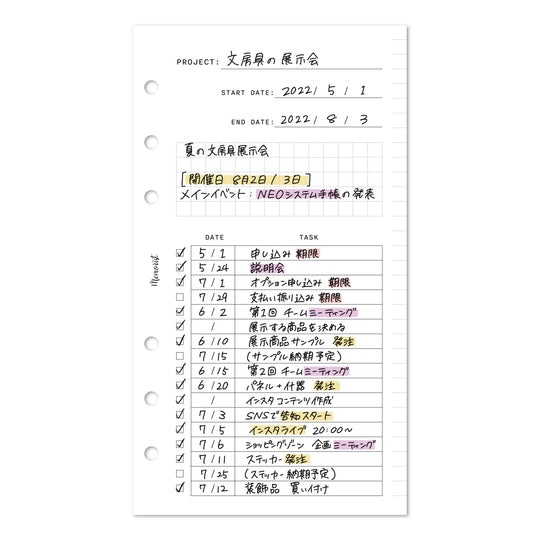 PROJECT: 文房具の展示会
START DATE: 2022 / 5 / 1
END DATE: 2022 / 8 / 3
夏の文房具展示会
[開催日 8月2日 / 3日]
メインイベント: NEOシステム手帳の発表
DATE TASK
5 / 1 申し込み 期限
5 / 24 説明会
7 / 1 オプション申し込み 期限
7 / 29 支払い振り込み 期限
6 / 2 第1回 チームミーティング
/ 展示する商品を決める
6 / 10 展示商品サンプル 発注
7 / 15 (サンプル納期予定)
6 / 15 第2回 チームミーティング
6 / 20 パネル+什器 発注
/ インスタコンテンツ作成
7 / 3 SNSで告知スタート
7 / 5 インスタライブ 20:00〜
7 / 6 ショッピングゾーン 企画ミーティング
7 / 11 ステッカー発注
7 / 25 (ステッカー納期予定)
7 / 12 装飾品 買い付け
Memorist